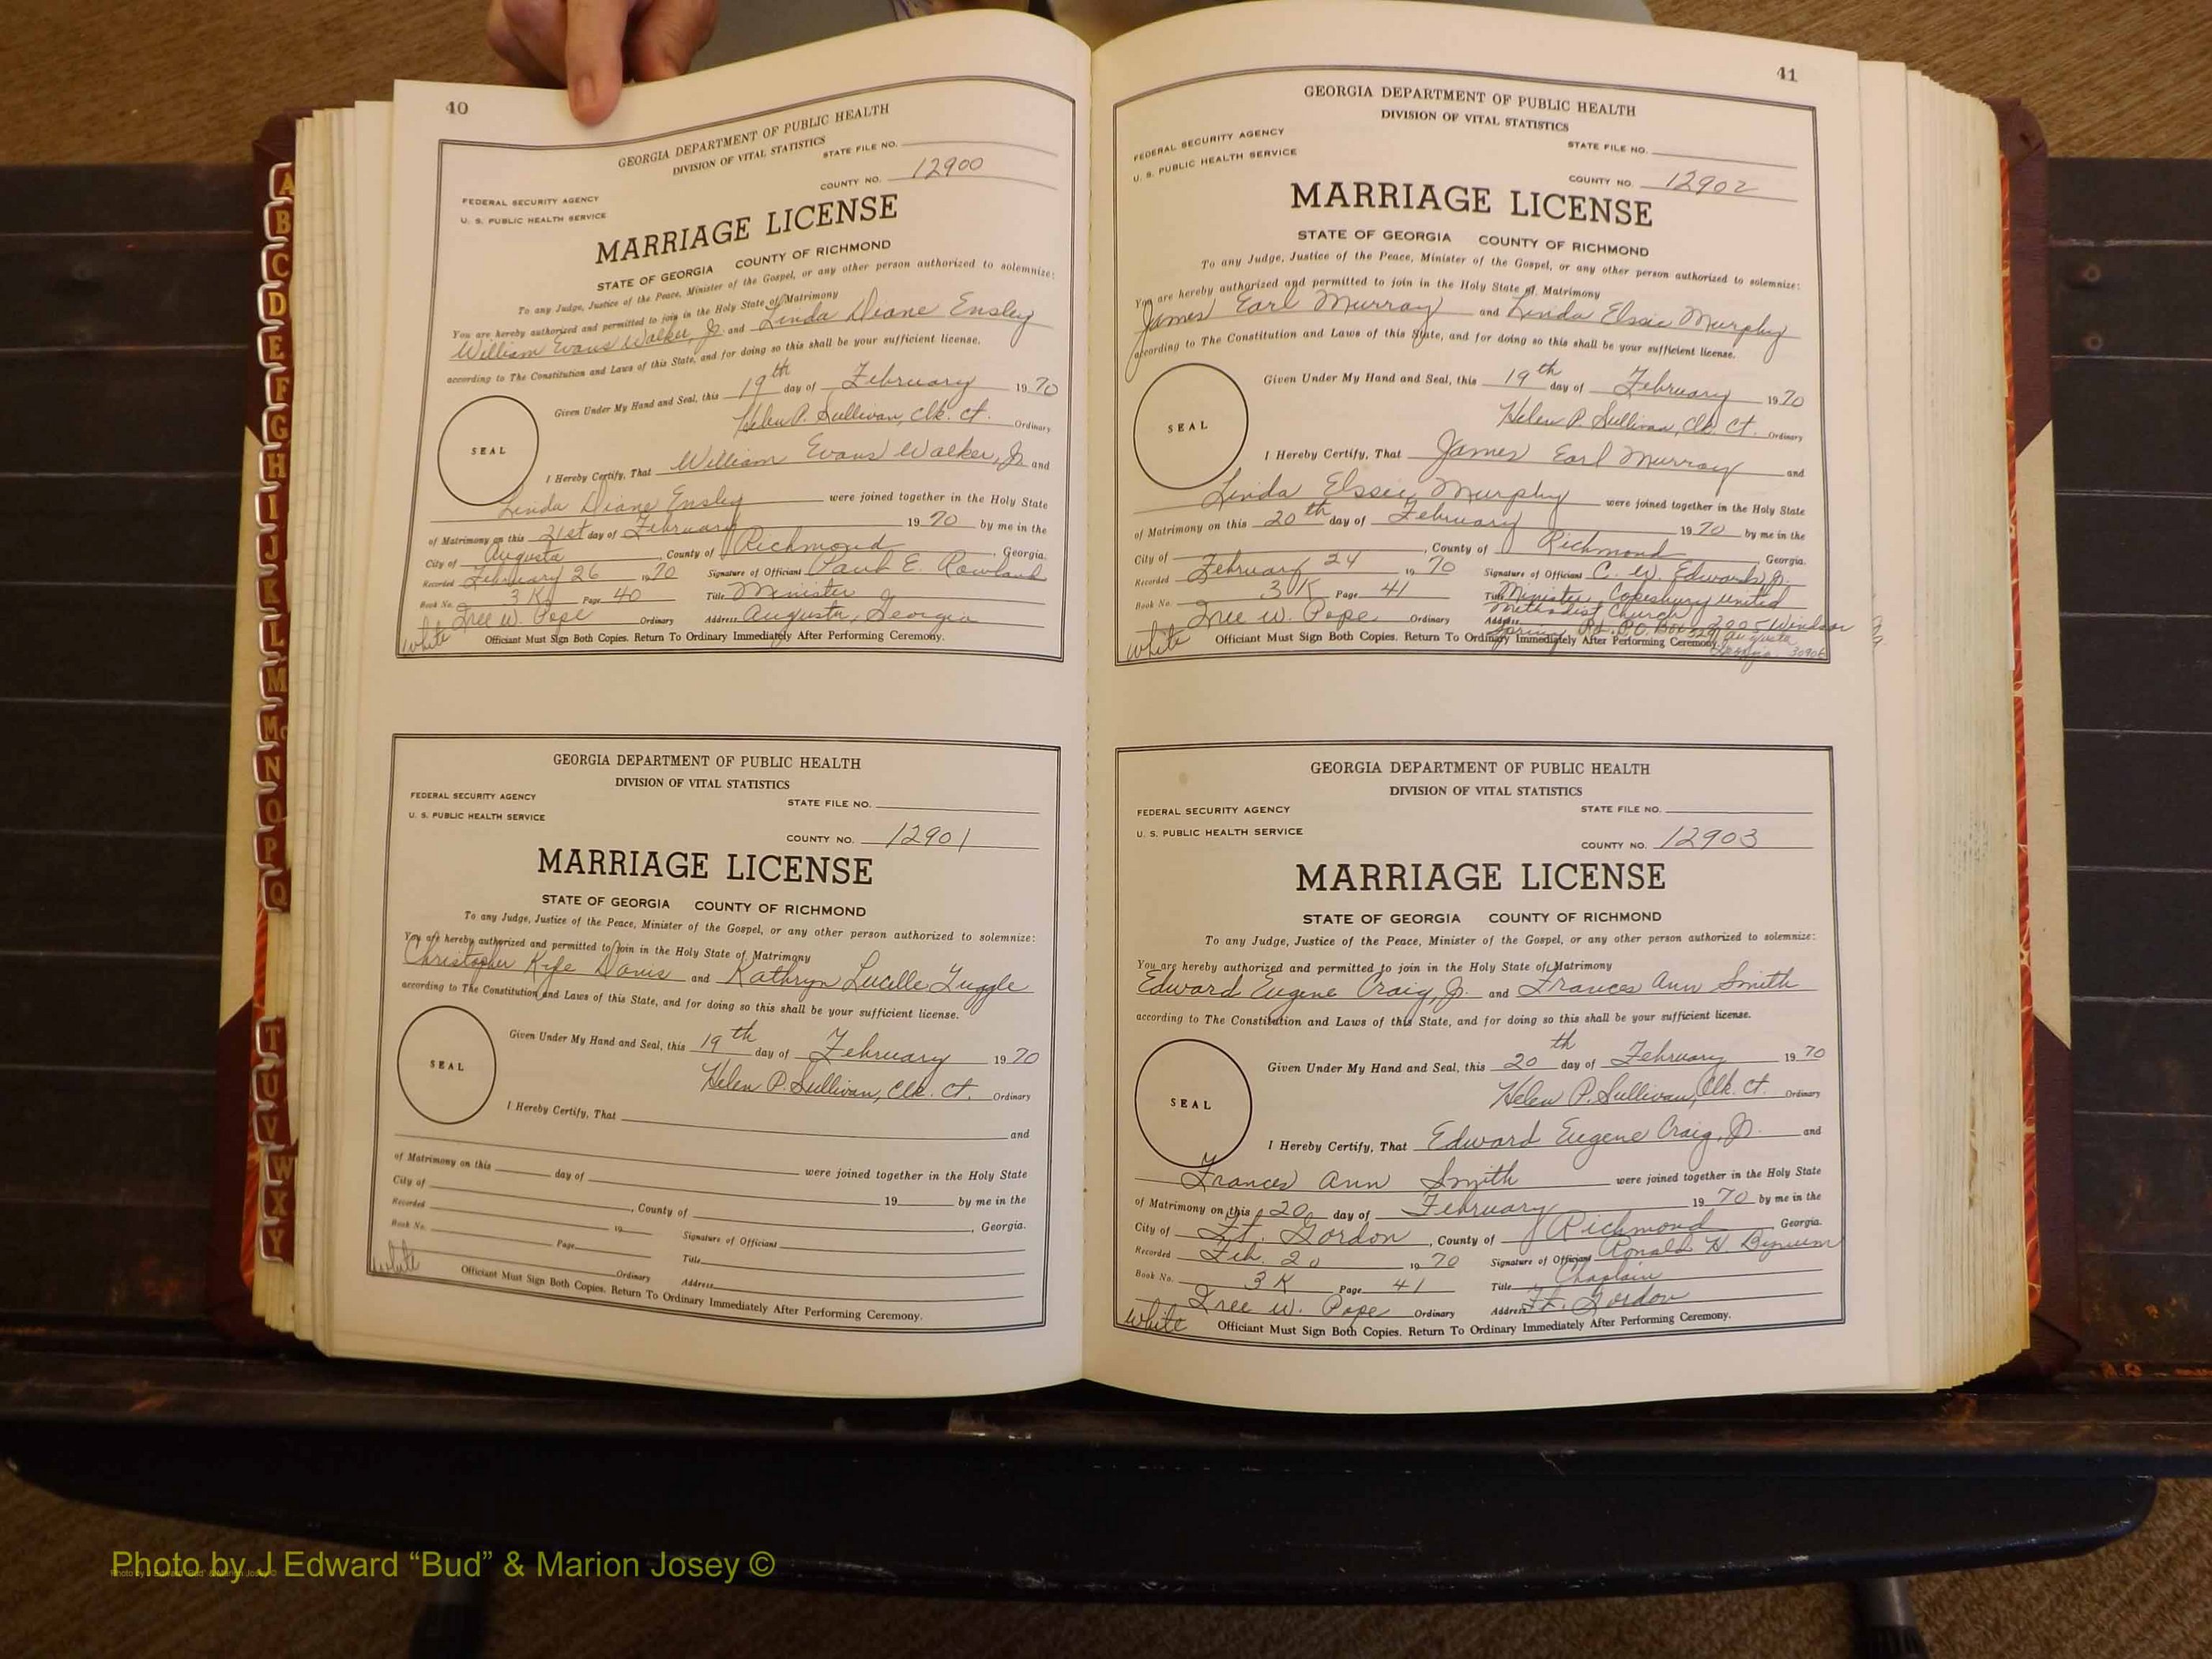 40
GEORGIA DEPARTMENT OF PUBLIC HEALTH
DIVISION OF VITAL STATISTICS
STATE FILE NO.
COUNTY NO. 12900
FEDERAL SECURITY AGENCY
U. S. PUBLIC HEALTH SERVICE
MARRIAGE LICENSE
STATE OF GEORGIA COUNTY OF RICHMOND
To any Judge, Justice of the Peace, Minister of the Gospel, or any other person authorized to solemnize:
You are hereby authorized and permitted to join in the Holy State of Matrimony
William Evans Walker, Jr. and Linda Diane Ensley
according to The Constitution and Laws of this State, and for doing so this shall be your sufficient license.
Given Under My Hand and Seal, this 19th day of February 1970
Helen P. Sullivan, Clk. Ct. Ordinary
SEAL
I Hereby Certify, That William Evans Walker, Jr. and
Linda Diane Ensley were joined together in the Holy State
of Matrimony on this 21st day of February 1970 by me in the
City of Augusta, County of Richmond, Georgia.
Recorded February 26 1970 Signature of Officiant Paul E. Rowland
Book No. 3 K Page 40 Title Minister
Inee W. Pope Ordinary Address Augusta, Georgia
white Officiant Must Sign Both Copies. Return To Ordinary Immediately After Performing Ceremony.
GEORGIA DEPARTMENT OF PUBLIC HEALTH
DIVISION OF VITAL STATISTICS
FEDERAL SECURITY AGENCY
STATE FILE NO.
U. S. PUBLIC HEALTH SERVICE
COUNTY NO. 12901
MARRIAGE LICENSE
STATE OF GEORGIA COUNTY OF RICHMOND
To any Judge, Justice of the Peace, Minister of the Gospel, or any other person authorized to solemnize:
You are hereby authorized and permitted to join in the Holy State of Matrimony
Christopher Kyle Davis and Kathryn Lucille Tuggle
according to The Constitution and Laws of this State, and for doing so this shall be your sufficient license.
Given Under My Hand and Seal, this 19th day of February 1970
Helen P. Sullivan, Clk. Ct. Ordinary
SEAL
I Hereby Certify, That
and
were joined together in the Holy State
of Matrimony on this day of 19 by me in the
City of , County of , Georgia.
Recorded 19 Signature of Officiant
Book No. Page Title
Ordinary Address
white Officiant Must Sign Both Copies. Return To Ordinary Immediately After Performing Ceremony.
41
GEORGIA DEPARTMENT OF PUBLIC HEALTH
DIVISION OF VITAL STATISTICS
FEDERAL SECURITY AGENCY
STATE FILE NO.
U. S. PUBLIC HEALTH SERVICE
COUNTY NO. 12902
MARRIAGE LICENSE
STATE OF GEORGIA COUNTY OF RICHMOND
To any Judge, Justice of the Peace, Minister of the Gospel, or any other person authorized to solemnize:
You are hereby authorized and permitted to join in the Holy State of Matrimony
James Earl Murray and Linda Elsie Murphy
according to The Constitution and Laws of this State, and for doing so this shall be your sufficient license.
Given Under My Hand and Seal, this 19th day of February 1970
Helen P. Sullivan, Clk. Ct. Ordinary
SEAL
I Hereby Certify, That James Earl Murray and
Linda Elsie Murphy were joined together in the Holy State
of Matrimony on this 20th day of February 1970 by me in the
City of , County of Richmond Georgia.
Recorded February 24 1970 Signature of Officiant C. W. Edwards, Jr.
Book No. 3K Page 41 Title Minister, Cokesbury United
Methodist Church
Inee W. Pope Ordinary Address 2005 Windsor
Spring Rd. P.O. Box Augusta
Georgia 30906
white Officiant Must Sign Both Copies. Return To Ordinary Immediately After Performing Ceremony.
GEORGIA DEPARTMENT OF PUBLIC HEALTH
DIVISION OF VITAL STATISTICS
FEDERAL SECURITY AGENCY
STATE FILE NO.
U. S. PUBLIC HEALTH SERVICE
COUNTY NO. 12903
MARRIAGE LICENSE
STATE OF GEORGIA COUNTY OF RICHMOND
To any Judge, Justice of the Peace, Minister of the Gospel, or any other person authorized to solemnize:
You are hereby authorized and permitted to join in the Holy State of Matrimony
Edward Eugene Craig, Jr. and Frances Ann Smith
according to The Constitution and Laws of this State, and for doing so this shall be your sufficient license.
Given Under My Hand and Seal, this 20th day of February 1970
Helen P. Sullivan, Clk. Ct. Ordinary
SEAL
I Hereby Certify, That Edward Eugene Craig, Jr. and
Frances Ann Smith were joined together in the Holy State
of Matrimony on this 20 day of February 1970 by me in the
City of Ft. Gordon, County of Richmond, Georgia.
Recorded Feb. 20 1970 Signature of Officiant Ronald H. Bynum
Book No. 3 K Page 41 Title Chaplain
Inee W. Pope Ordinary Address Ft. Gordon
white Officiant Must Sign Both Copies. Return To Ordinary Immediately After Performing Ceremony.
A
B
C
D
E
F
G
H
I
J
K
L
M
Mc
N
O
P
Q
T
U
V
W
X
Y
Photo by J Edward “Bud” & Marion Josey ©